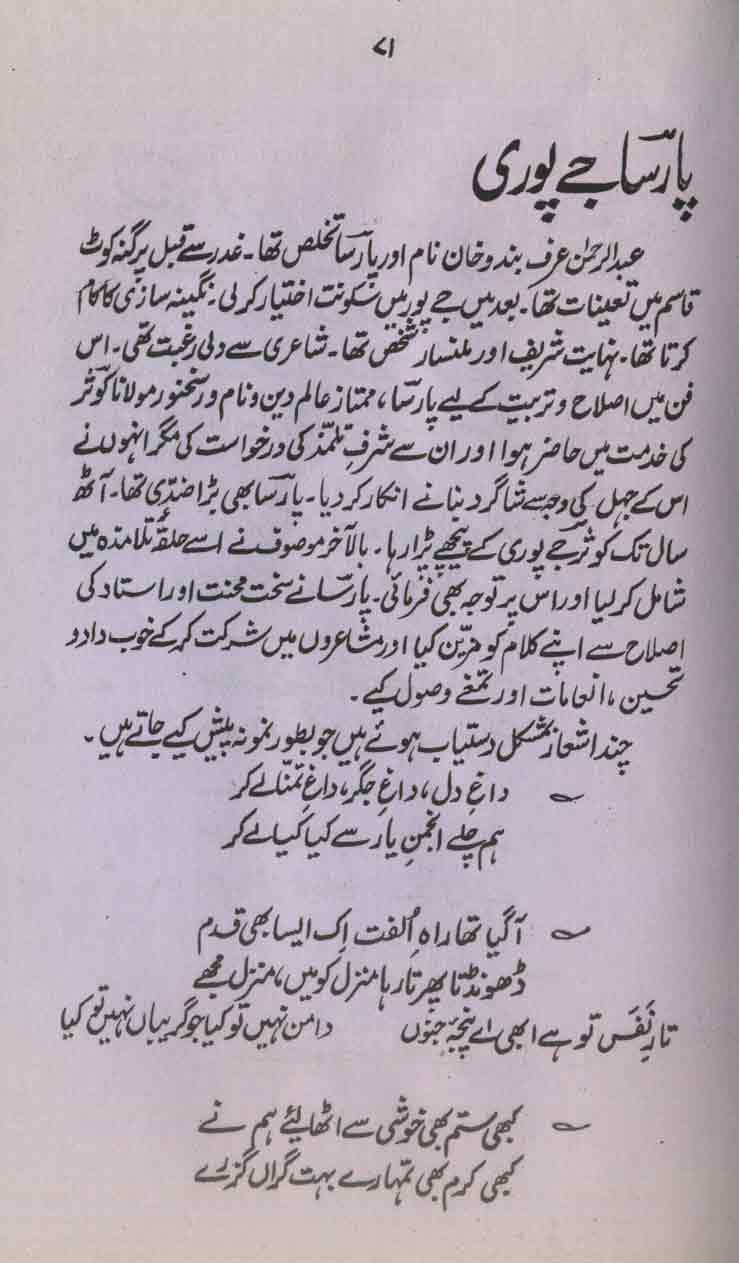 ۷۱
پارسؔا جے پوری
عبدالرحمٰن عرف بندو خان نام اور پارسؔا تخلص تھا۔ غدر سے قبل پرگنہ کوٹ
قاسم میں تعینات تھا۔ بعد میں جے پور میں سکونت اختیار کرلی۔ نگینہ سازی کا کام
کرتا تھا۔ نہایت شریف اور ملنسار شخص تھا۔ شاعری سے دلی رغبت تھی۔ اس
فن میں اصلاح و تربیت کے لیے پارسؔا، ممتاز عالم دین و نام ور سخنور مولانا کوثؔر
کی خدمت میں حاضر ہوا اور ان سے شرفِ تلمّذ کی درخواست کی مگر انہوں نے
اس کے جہل کی وجہ سے شاگرد بنانے انکار کر دیا۔ پارسؔا بھی بڑا ضدّی تھا۔ آٹھ
سال تک کوثؔر جے پوری کے پیچھے پڑا رہا۔ بالآخر موصوف نے اسے حلقۂ تلامذہ میں
شامل کر لیا اور اس پر توجہ بھی فرمائی۔ پارسؔا نے سخت محنت اور استاد کی
اصلاح سے اپنے کلام کو مزّین کیا اور مشاعروں میں شرکت کرکے خوب داد و
تحسین، انعامات اور تمغے وصول کیے۔
چند اشعار بمشکل دستیاب ہوئے ہیں جو بطور نمونہ پیش کیے جاتے ہیں۔
؎ داغِ دل، داغِ جگر، داغِ تمنّا لے کر
ہم چلے انجمنِ یار سے کیا کیا لے کر
؎ آگیا تھا راہِ اُلفت اِک ایسا بھی قدم
ڈھونڈتا پھرتا رہا منزل کو میں، منزل مجھے
تارِ نَفَس تو ہے ابھی اے پنجۂ جنوں دامن نہیں تو کیا جو گریباں نہیں تو کیا
؎ کبھی ستم بھی خوشی سے اٹھا لیئے ہم نے
کبھی کرم بھی تمہارے بہت گراں گزرے